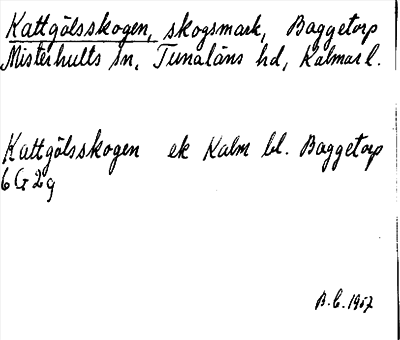 Kattgölsskogen, skogsmark, Baggetorp
Misterhults sn, Tunaläns hd, Kalmar l.
Kattgölsskogen ek Kalm bl. Baggetorp
6 G 2 g
B.C. 1957